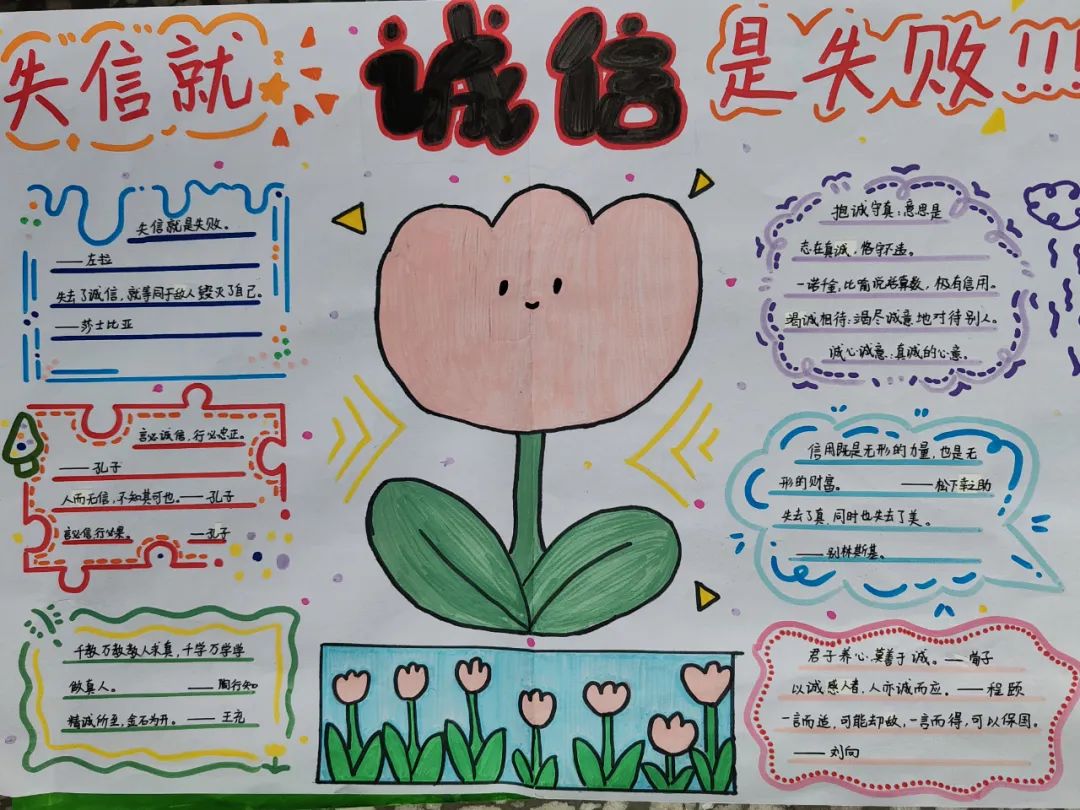 失信就
诚信
是失败!!!
失信就是失败。
——左拉
失去了诚信,就等同于敌人毁灭了自己。
——莎士比亚
言必诚信,行必忠正。
——孔子
人而无信,不知其可也。——孔子
言必信行必果。 ——孔子
千教万教教人求真,千学万学学
做真人。 ——陶行知
精诚所至,金石为开。——王充
抱诚守真:意思是
志在真诚,恪守不违。
一诺千金,比喻说话算数,极有信用。
竭诚相待:竭尽诚意地对待别人。
诚心诚意:真诚的心意.
信用既是无形的力量,也是无
形的财富。 ——松下幸之助
失去了真,同时也失去了美。
——别林斯基。
君子养心,莫善于诚。——荀子
以诚感人者,人亦诚而应。——程颐
一言而适,可能却敌,一言而得,可以保国。
——刘向